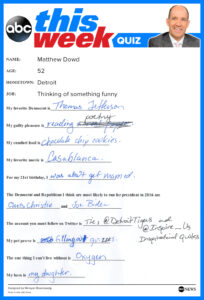 abc this
week QUIZ
NAME: Matthew Dowd
AGE: 52
HOMETOWN: Detroit
JOB: Thinking of something funny
My favorite Democrat is Thomas Jefferson
poetry
My guilty pleasure is reading
My comfort food is chocolate chip cookies.
My favorite movie is Casablanca.
For my 21st birthday, I was get married.
The Democrat and Republican I think are most likely to run for president in 2016 are
Chris Christie and Joe Biden
The account you must follow on Twitter is The @DetroitTigers and
@Inspire_Us
Inspirational Quotes
My pet peeve is
The one thing I can't live without is Oxygen
My hero is my daughter.
abc NEWS